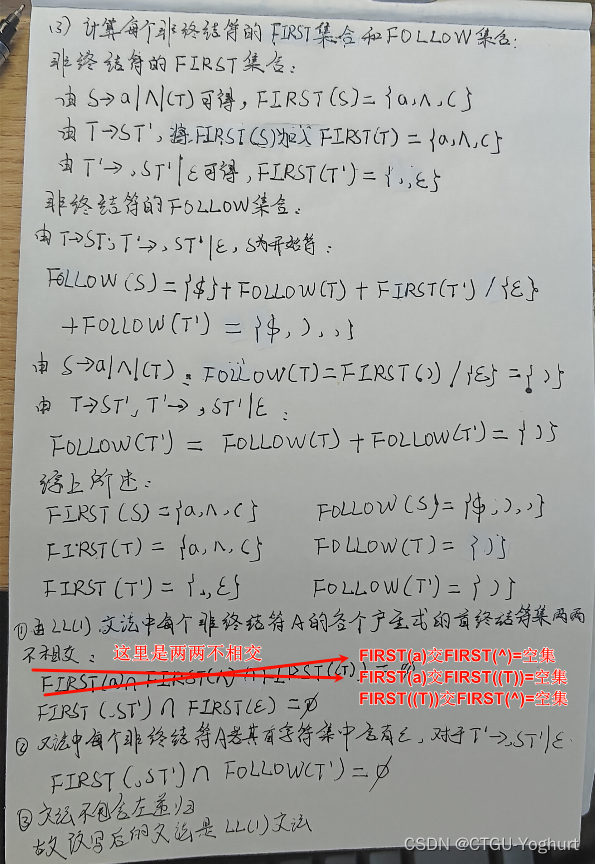 (3) 计算每个非终结符的FIRST集合和FOLLOW集合:
非终结符的FIRST集合:
由 S→a|∧|(T) 可得, FIRST(S)={a,∧,(}
由 T→ST', 将FIRST(S)加入FIRST(T)={a,∧,(}
由 T'→,ST'|ε可得, FIRST(T')={,,ε}
非终结符的FOLLOW集合:
由T→ST', T'→,ST'|ε, S为开始符:
FOLLOW(S)={$}+FOLLOW(T)+FIRST(T')/{ε}
+FOLLOW(T')={$,),,}
由 S→a|∧|(T): FOLLOW(T)=FIRST())/{ε}={)}
由 T→ST', T'→,ST'|ε:
FOLLOW(T')=FOLLOW(T)+FOLLOW(T')={)}
综上所述:
FIRST(S)={a,∧,(} FOLLOW(S)={$,),,}
FIRST(T)={a,∧,(} FOLLOW(T)={)}
FIRST(T')={,,ε} FOLLOW(T')={)}
①由LL(1)文法中每个非终结符A的各个产生式的首终结符集两两
不相交: 这里是两两不相交
FIRST(a)交FIRST(^)=空集
FIRST(a)∩FIRST(∧)∩FIRST((T))=∅
FIRST(a)交FIRST((T))=空集
FIRST((T))交FIRST(^)=空集
FIRST(,ST')∩FIRST(ε)=∅
②文法中每个非终结符A若其首字符集中含有ε, 对于T'→,ST'|ε.
FIRST(,ST')∩FOLLOW(T')=∅
③文法不包含左递归
故改写后的文法是LL(1)文法
CSDN @CTGU-Yoghurt